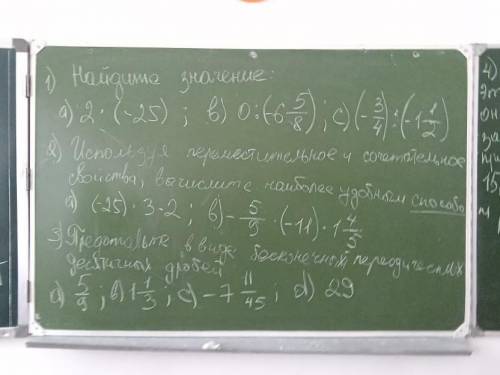 1) Найдите значение:
а) 2 · (-25) ; в) 0 : (-6 5/8) ; с) (-3/4) : (-1 1/2)
2) Используя переместительное и сочетательное
свойства, вычислите наиболее удобным способо
а) (-25) · 3 · 2 ; в) -5/9 · (-11) · 1 4/5 .
3) Представьте в виде бесконечных периодических
десятичных дробей
а) 5/9 ; в) 1 1/3 ; с) -7 11/45 ; d) 29
4)
Эт
он
за
15